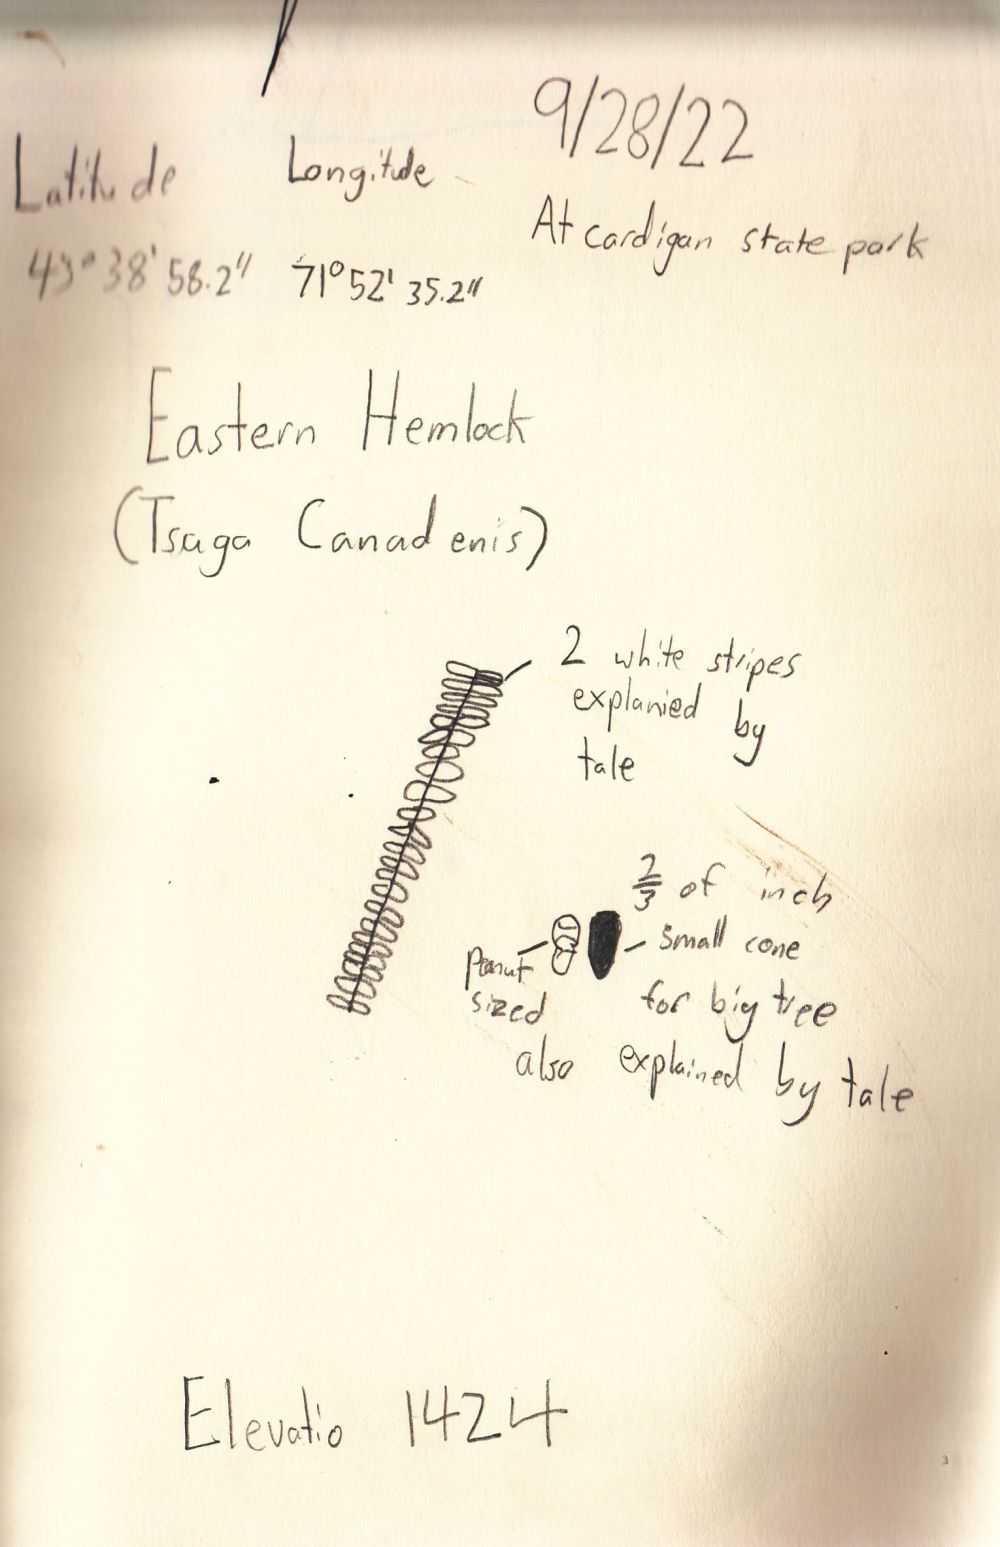 9/28/22
Latitude Longitude
At cardigan state park
43° 38' 58.2" 71° 52' 35.2"
Eastern Hemlock
(Tsuga Canadenis)
2 white stripes
explanied by
tale
2/3 of inch
small cone
Peanut
sized
for big tree
also explained by tale
Elevatio 1424